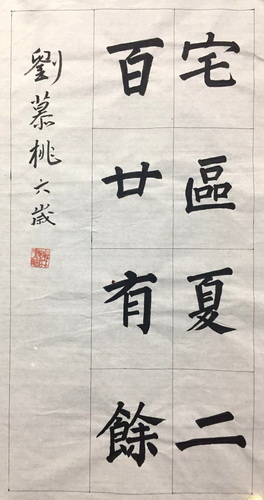 宅區夏二
百廿有餘
劉慕桃六歲